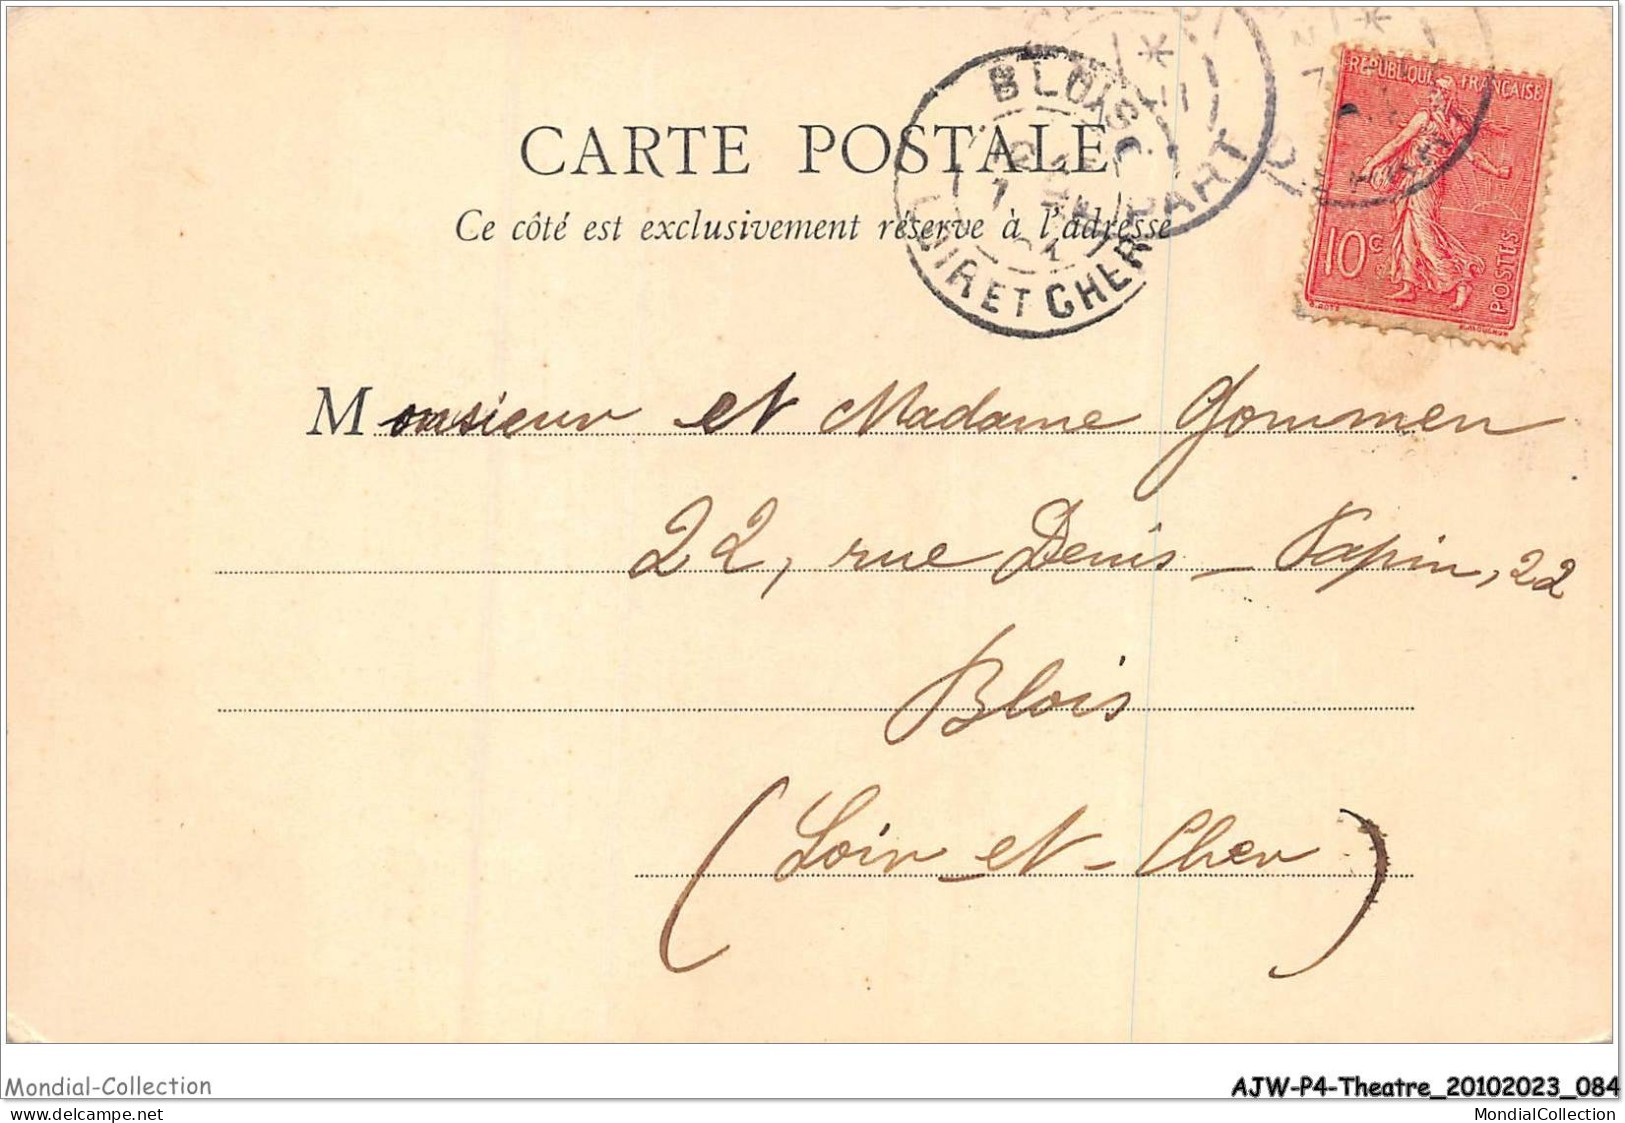 CARTE POSTALE
Ce côté est exclusivement réservé à l'adresse
BLOIS
LOIR ET CHER
DÉPART
REPUBLIQUE FRANÇAISE
10c
POSTES
Monsieur et Madame Gommen
22, rue Denis-Papin, 22
Blois
(Loir-et-Cher)
Mondial-Collection
AJW-P4-Theatre_20102023_084
www.delcampe.net
MondialCollection